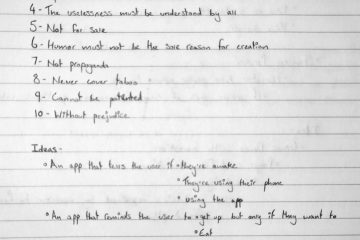 4- The uselessness must be understood by all
5- Not for sale
6- Humor must not be the sole reason for creation
7- Not propaganda
8- Never cover taboo
9- Cannot be patented
10- Without prejudice
Ideas-
• An app that tells the user if • they're awake
• They're using their phone
• using the app
• An app that reminds the user to • get up but only if they want to
• Eat